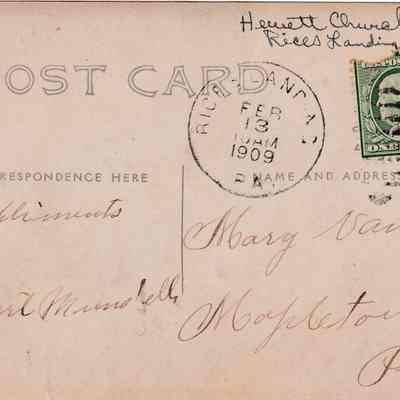 Hewett Church
Rices Landing
POST CARD
RICES LANDING
FEB
13
10AM
1909
PA.
RESPONDENCE HERE
NAME AND ADDRESS
pliments
Mary Van
Mapletow